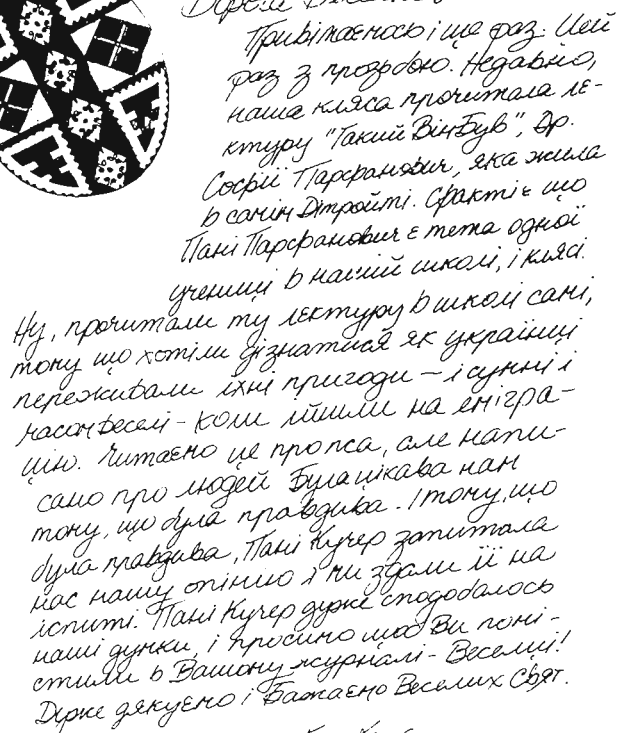 Дорогій
Привітаємось і ще раз. Цей
раз з прозьбою. Недавно,
наша кляса прочитала ле-
ктуру "Такий Він Був", Др.
Софії Парфанович, яка жила
в самім Дітройті. Факті є що
Пані Парфанович є тета одної
учениці в нашій школі, і клясі.
Ну, прочитали ту лектуру в школі самі,
тому що хотіли дізнатися як українці
переживали їхні пригоди — і сумні і
часом веселі - коли йшли на емігра-
цію. Читаємо це про пса, але напи-
сано про людей Була цікава нам
тому, що була правдива. І тому, що
була правдива, Пані Кучер запитала
нас нашу опінію і ми здали її на
іспиті. Пані Кучер дуже сподобалось
наші думки, і просимо щоб Ви помі-
стили в Вашому журналі - Веселці!
Дуже дякуємо і Бажаємо Веселих Свят.